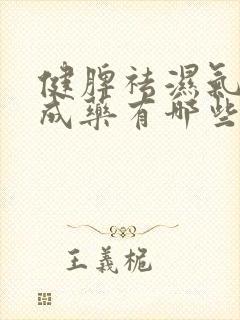 健脾祛濕氣
成藥有哪些
王義桅